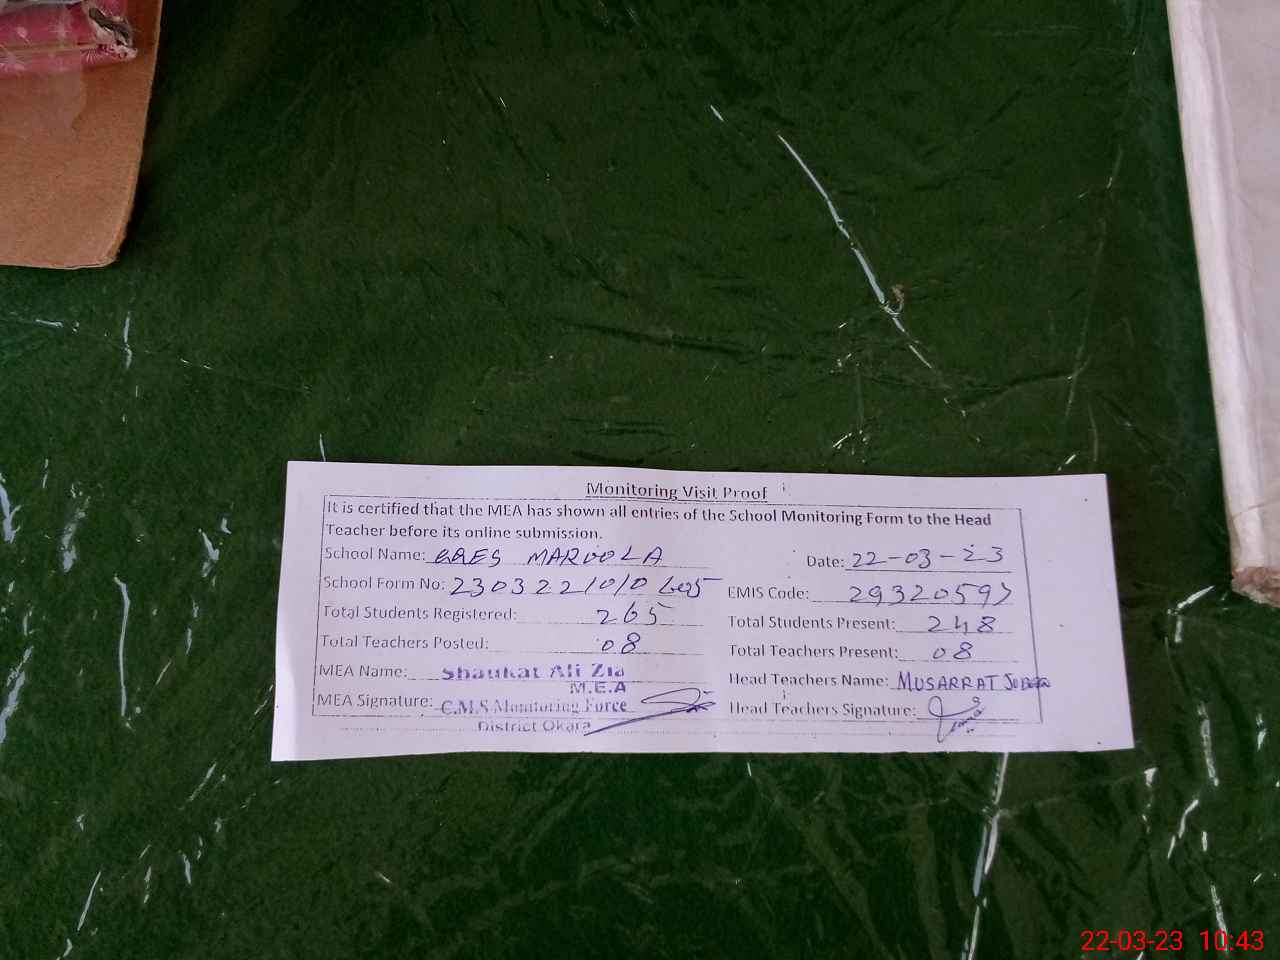 Monitoring Visit Proof
It is certified that the MEA has shown all entries of the School Monitoring Form to the Head
Teacher before its online submission.
School Name: GGES MAROOLA Date: 22-03-23
School Form No: 2303221010 EMIS Code: 29320597
Total Students Registered: 265 Total Students Present: 248
Total Teachers Posted: 08 Total Teachers Present: 08
MEA Name: Shaukat Ali Zia Head Teachers Name: MUSARRAT
M.E.A
MEA Signature: C.M.S Monitoring Force Head Teachers Signature:
District Okara
22-03-23 10:43